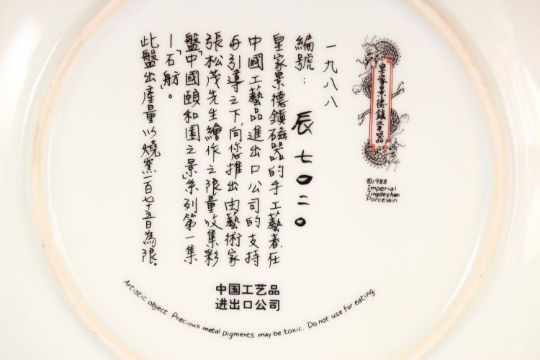 皇家景德鎮瓷器
©1988
Imperial
Jingdezhen
Porcelain
一九八八
編號: 辰 七〇二〇
皇家景德鎮磁器的手工藝者,在
中國工藝品進出口公司的支持
与引導之下,向您推出由藝術家
張松茂先生繪作之限量收集彩
盤"中國頤和園之景"系列第一集
—"石舫"。
此盤出產量以燒窯一百七十五日為限。
中国工艺品
进出口公司
Artistic object. Precious metal pigments may be toxic. Do not use for eating.